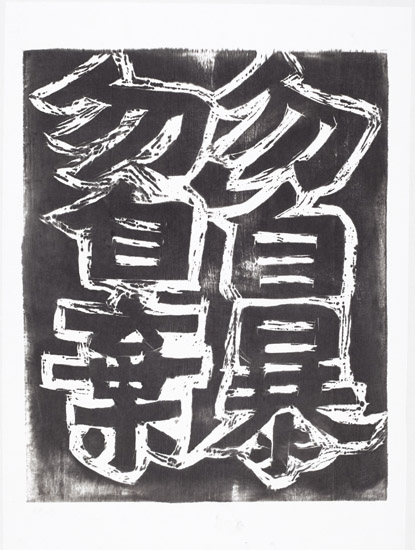 勿自暴
勿自棄